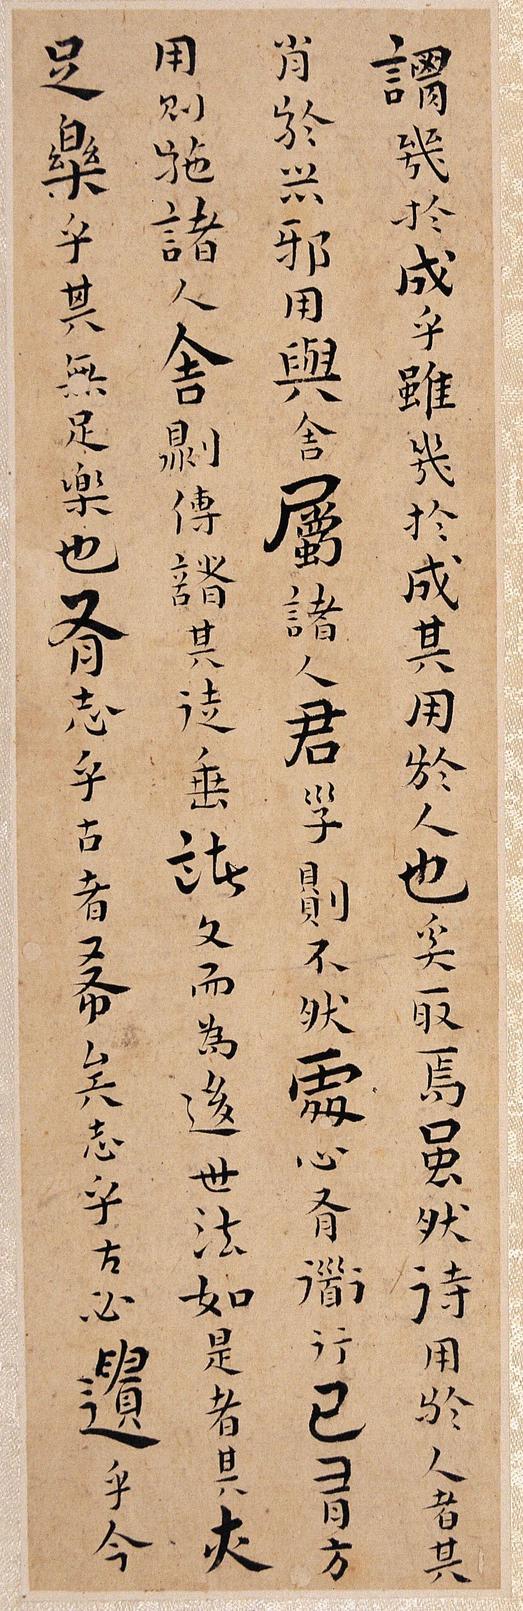 謂幾於成乎雖幾於成其用於人也奚取焉虽然待用於人者其
肖於器邪用與舍屬諸人君子則不然處心有道行已有方
用則施諸人舍則傳諸其徒垂諸文而為後世法如是者其亦
足樂乎其無足樂也有志乎古者希矣志乎古必遺乎今